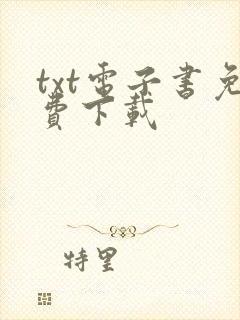 txt電子書免
費下載
特里